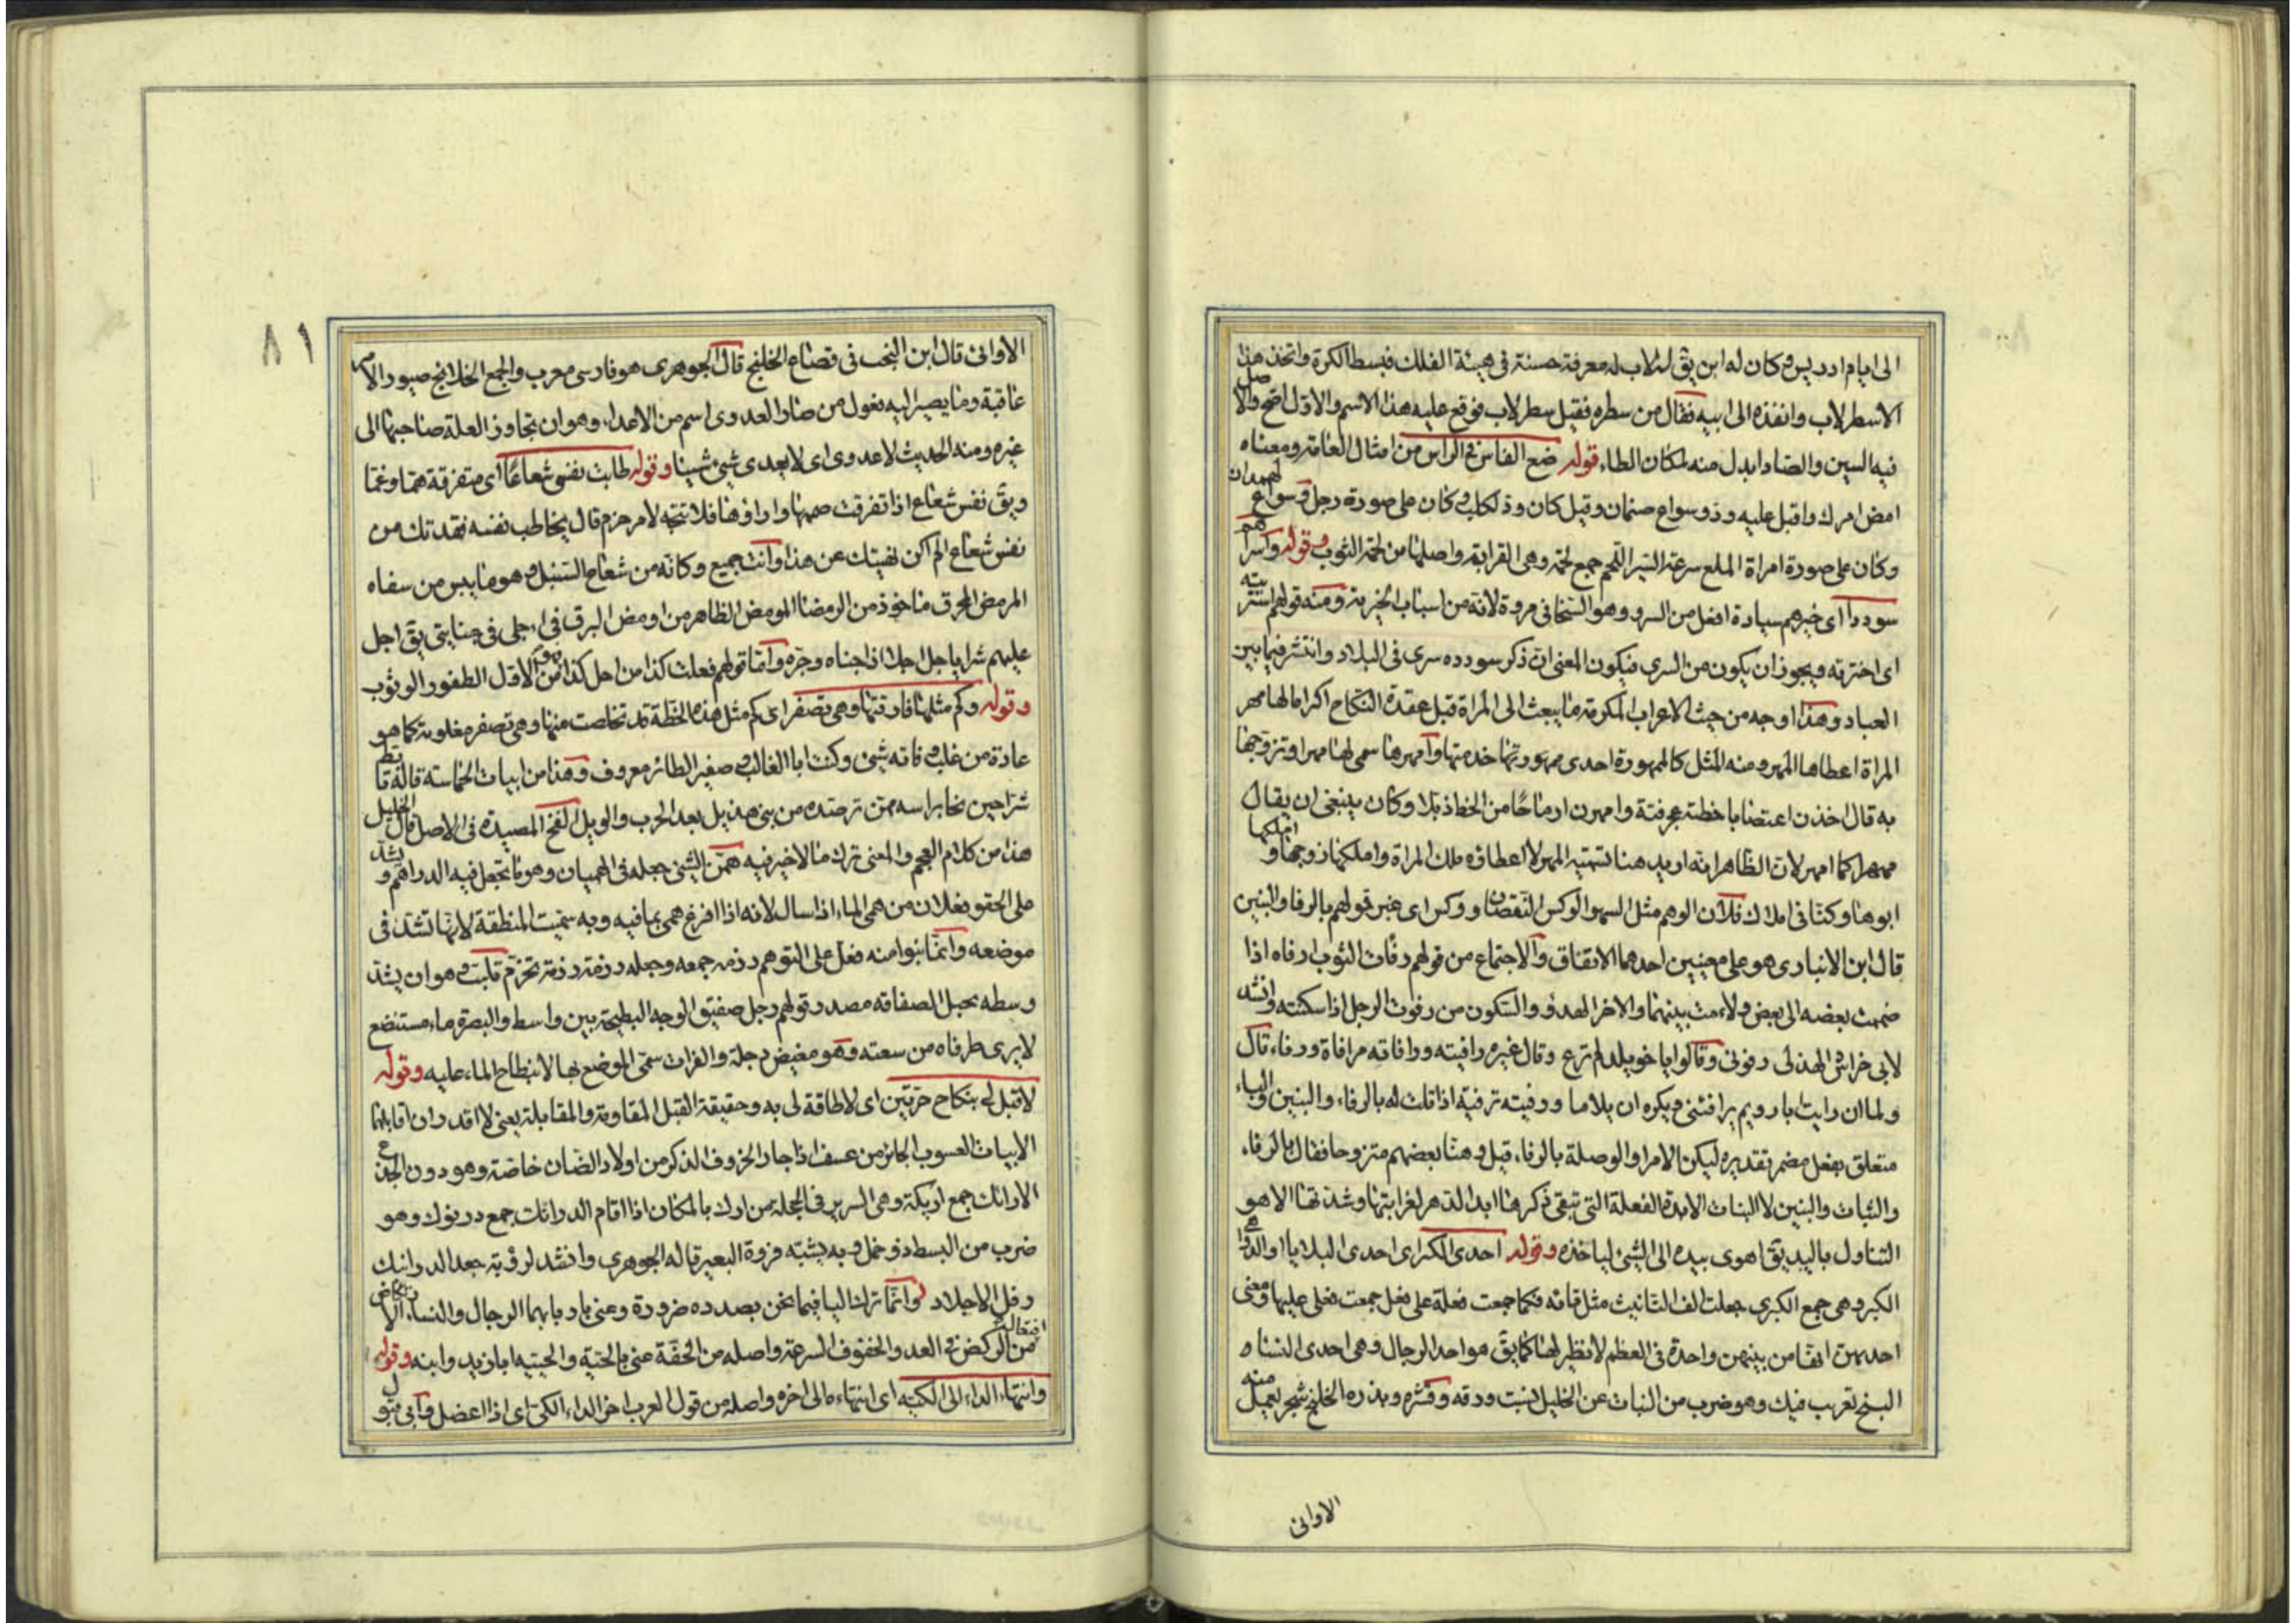 الى ايام ادريس وكان له ابن يقٓ له لاب له معرفة حسنة فى هيئة الفلك فبسط الكرة واتخذ هذا
الاسطرلاب وانفذه الى ابيه فقال من سطره فقيل سطر لاب فوقع عليه هذا الاسم والاوّل اصح والاصل
فيه السين والصاد ابدل منه لمكان الطاء قوله ضع الفاس فى الراس من امثال العامة ومعناه
امض امرك واقبل عليه ودّ وسواع صنمان وقيل كان ودّ لكلب وكان على صورة رجل وسواع لهمدان
وكان على صورة امراة الملع سرعة السير اللحم جمع لحمة وهى القرابة واصلها من لحمة الثوب وقوله واسراهم
سوددا اى خيرهم سيادة افعل من السرو وهو السخا فى مروة لانه من اسباب الخيرية ومنه قولهم استريته
اى اخترته ويجوز ان يكون من السرى فيكون المعنى ان ذكر سودده سرى فى البلاد وانتشر فيما بين
العباد وهذا اوجه من حيث الاعراب المكرمة ما يبعث الى المراة قبل عقدة النكاح اكراما لها مهر
المراة اعطاها المهر ومنه المثل كالممهورة احدى خدمتها وامهرها سمى لها مهرا وتزوجها
به قال اخذن اغتصابا خطبة عجرفية وامهرن ارماحا من الخط ذبلا وكان ينبغى ان يقال
ممهرا كما امهر لان الظاهر انه اريد هنا تسمية المهر لا اعطاؤه ملك المراة واملكها زوجها واملكها
ابوها وكنا فى املاك فلان الوهم مثل السهو الوكس النقصان ووكس اى خسر قولهم بالرفا والبنين
قال ابن الانبارى هو على معنيين احدهما الاتفاق والاجتماع من قولهم رفات الثوب ارفاه اذا
ضممت بعضه الى بعض ولاءمت بينهما والاخر الهدو والسكون من رفوت الرجل اذا سكنته وانشد
لابى خراش الهذلى رفونى وقالوا يا خويلد لم ترع وقال غيره رافيته ووافاته مرافاة ورفاء قال
ولما ان رايت ابا رويم يرافئنى ويكره ان يلاما ورفيته ترفية اذا قلت له بالرفاء والبنين والباء
متعلق بفعل مضمر تقديره ليكن الامر او الوصلة بالرفاء قيل وهنا بعضهم متزوجا فقال بالرفاء
والثبات والبنين لا البنات الابدة الفعلة التى تبقى ذكرها ابد الدهر لغرابتها وشدتها الاهو
التناول باليد يقٓ اهوى بيده الى الشئ لياخذه وقوله احدى الكبر اى احدى البلايا او الدواهى
الكبر وهى جمع الكبرى جعلت الف التانيث مثل تائه فكما جمعت فعلة على فعل جمعت فعلى عليها ومعنى
احديهن انها من بينهن واحدة فى العظم لا نظير لها كما يقٓ هو احد الرجال وهى احدى النساء
البنج تعريب فيك وهو ضرب من النبات عن الخليل ينبت ورقه وقشره وبذره الخلنج شجر يعمل منه
الاوانى
٨١
الاوانى قال ابن النجب فى قصاع الخلنج قال الجوهرى هو فارسى معرب والجمع الخلانج صيور الامر
عاقبة وما يصير اليه فعول من صار العدوى اسم من الاعداء وهو ان تجاوز العلة صاحبها الى
غيره ومنه الحديث لا عدوى اى لا يعدى شئ شيئا وقوله طابت نفسى شعاعا اى متفرقة همّا وغمّا
ويقٓ نفس شعاع اذا تفرقت هممها واراؤها فلا تتجه لامر حزم قال يخاطب نفسه فقدتك من
نفس شعاع الم اكن نهيتك عن هذا وانت جميع وكانه من شعاع السنبل وهو ما يبس من سفاه
المرمض المحرق ماخوذ من الرمضا المومض الظاهر من اومض البرق فى اجلى فى جنايتى يقٓ اجل
عليهم شرا ياجل اجلا اذا جناه وجره واما قولهم فعلت كذا من اجل كذا فهو من الاول الطفور الوثوب
وقوله وكم مثلها فارقتها وهى تصفر اى كم مثل هذه الخطة قد تخلصت منها وهى تصفر مغلوبة كما هو
عادة من غلب وفاته شئ وكنت ابا الغالب وصفير الطائر معروف وهذا من ابيات الحماسة قاله تابط
شرا حين نجا براسه ممن ترصده من بنى هذيل بعد الحرب والويل الفخ المصيدة فى الاصل قال الخليل
هذا من كلام العجم والمعنى ترك ما لا خير فيه همن الشئ جعله فى الهميان وهو ما تجعل فيه الدراهم ويشد
على الحقو فعلان من همى الماء اذا سال لانه اذا افرغ همى بما فيه وبه سميت المنطقة لانها تشد فى
موضعه وانما بنوا منه فعل على التوهم رزمه جمعه وجعله رزمة رزمة تحزم قلبت وهو ان يشد
وسطه بحبل الصفاقة مصدر قولهم رجل صفيق الوجه البطيحة بين واسط والبصرة ماء مستنقع
لا يرى طرفاه من سعته وهو مغيض دجلة والفرات سمى الموضع بها لانبطاح الماء عليه وقوله
لا قبل لى بنكاح حرتين اى لا طاقة لى به وحقيقة القبل المقاومة والمقابلة يعنى لا اقدر ان اقابلهما
الابيات العسوب الجائر من عسف اذا جار الخروف الذكر من اولاد الضان خاصة وهو دون الجذع
الارائك جمع اريكة وهى السرير فى الحجلة من ارك بالمكان اذا اقام الدرانك جمع درنوك وهو
ضرب من البسط ذو خمل وبه يشبه فروة البعير قاله الجوهرى وانشد لرؤبة جعد الدرانيك
رفل الاجلاد وانما ترك اليا فيما نحن بصدده ضرورة وعنى باربابها الرجال والنساء الارتكاض
افتعال من الركض فى العدو والخفوف السرعة واصله من الخفة عنى بالحية والحيية ابا زيد وابنه وقوله
وانتهاء الداء الى الكية اى انتهاءه الى اخره واصله من قول العرب اخر الداء الكى اى اذا اعضل وابى قبول